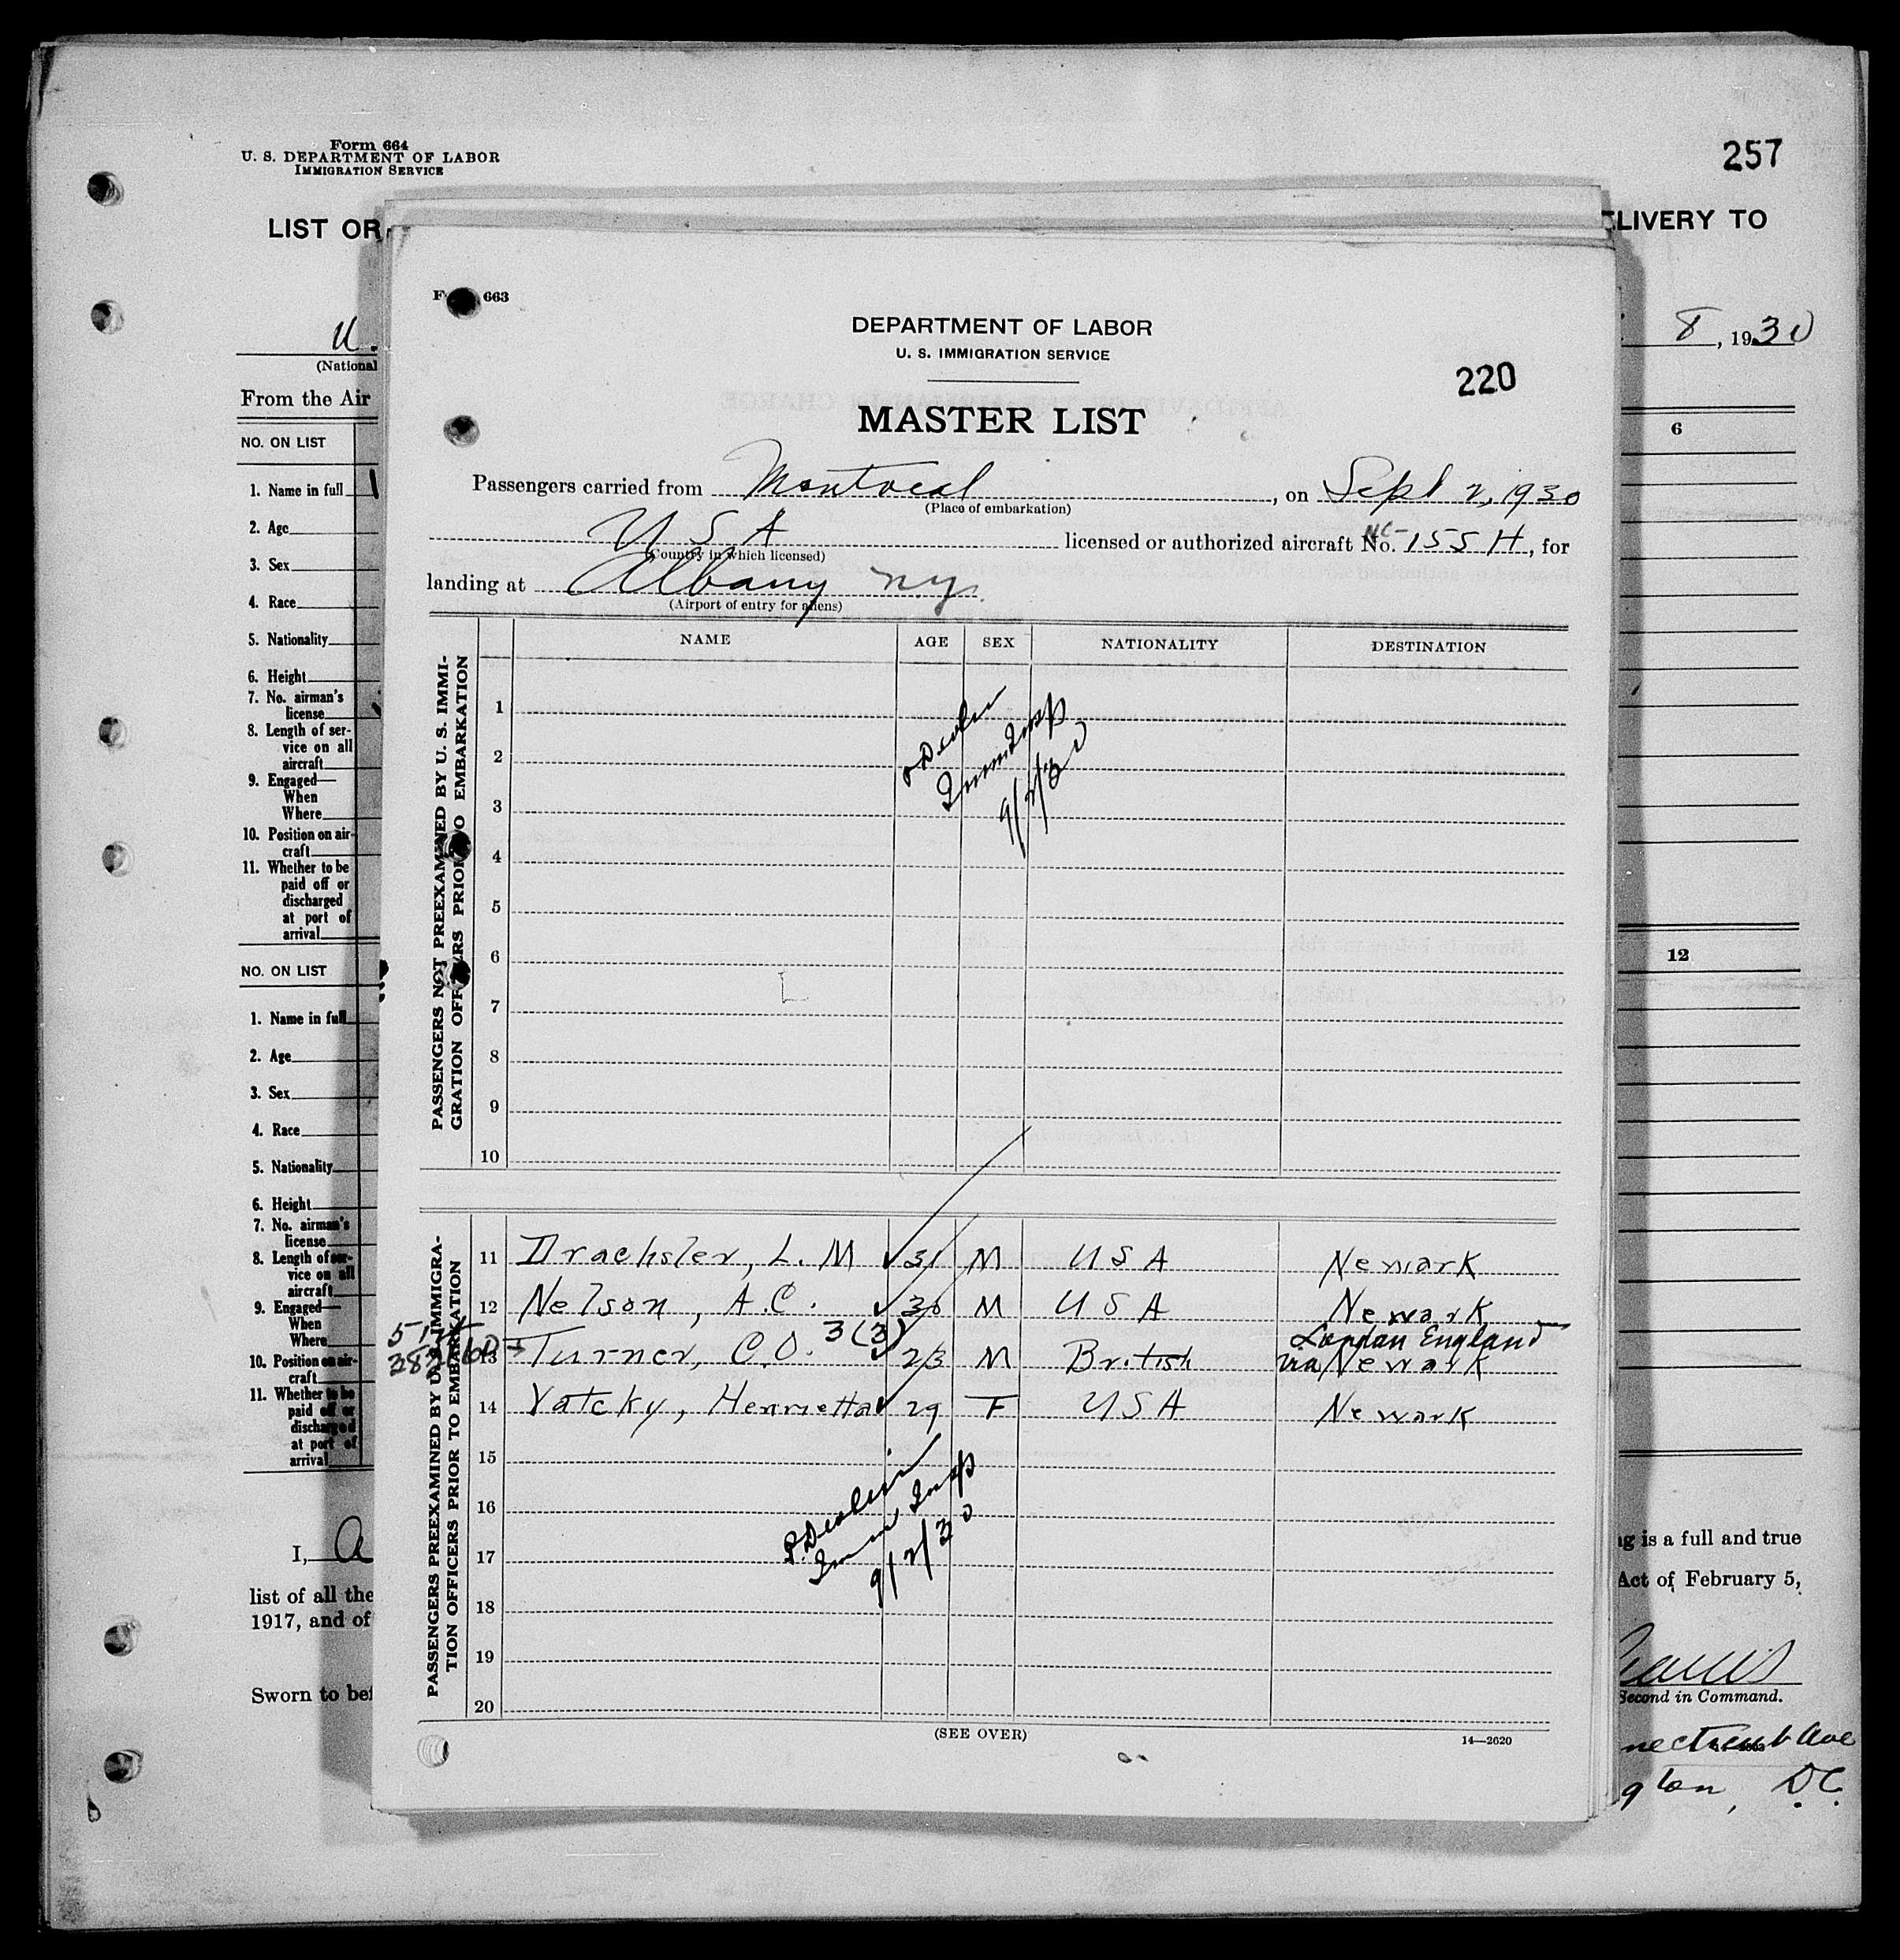 Form 664
U. S. DEPARTMENT OF LABOR
IMMIGRATION SERVICE
257
LIST OR
ELIVERY TO
U.
(National
8, 1930
From the Air
NO. ON LIST
6
1. Name in full
2. Age
3. Sex
4. Race
5. Nationality
6. Height
7. No. airman's
license
8. Length of ser-
vice on all
aircraft
9. Engaged—
When
Where
10. Position on air-
craft
11. Whether to be
paid off or
discharged
at port of
arrival
NO. ON LIST
12
1. Name in full
2. Age
3. Sex
4. Race
5. Nationality
6. Height
7. No. airman's
license
8. Length of ser-
vice on all
aircraft
9. Engaged—
When
Where
10. Position on air-
craft
11. Whether to be
paid off or
discharged
at port of
arrival
I, a
ng is a full and true
list of all the
Act of February 5,
1917, and of
Sworn to bef
Second in Command.
necticut Ave
gton, D.C.
F 663
DEPARTMENT OF LABOR
U. S. IMMIGRATION SERVICE
220
MASTER LIST
Passengers carried from Montreal, on Sept 2, 1930
(Place of embarkation)
USA licensed or authorized aircraft No. NC-155H, for
(Country in which licensed)
landing at Albany N.Y.
(Airport of entry for aliens)
NAME AGE SEX NATIONALITY DESTINATION
PASSENGERS NOT PREEXAMINED BY U. S. IMMI-
GRATION OFFICERS PRIOR TO EMBARKATION
1
2
3
4
5
6
7
8
9
10
Immn Insp
9/2/30
PASSENGERS PREEXAMINED BY U. S. IMMIGRA-
TION OFFICERS PRIOR TO EMBARKATION
11 Drachsler, L. M 31 M USA Newark
12 Nelson, A.C. 30 M USA Newark
13 Turner, C.O. 3(3) 23 M British London England
via Newark
14 Yatcky, Henrietta 29 F USA Newark
15
16
17
18
19
20
Immn Insp
9/2/30
(SEE OVER)
14—2620